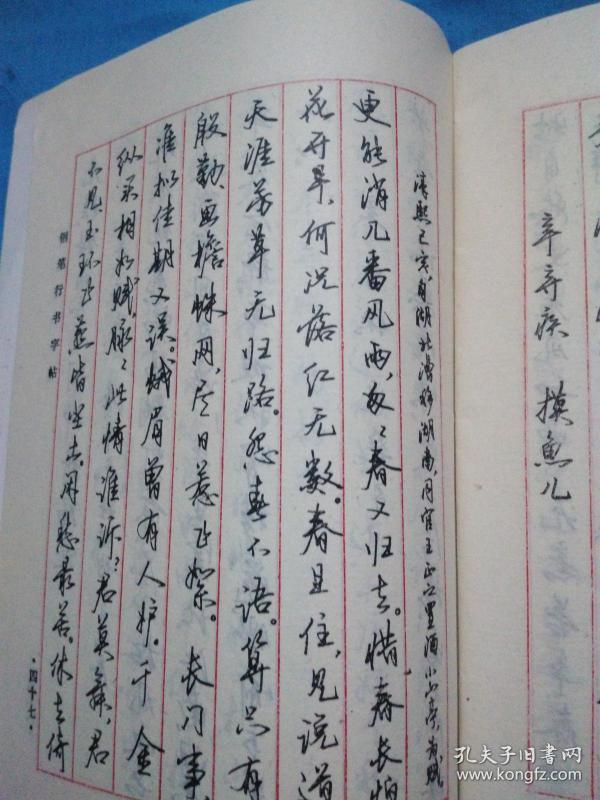 辛弃疾 摸鱼儿
淳熙己亥,自湖北漕移湖南,同官王正之置酒小山亭,为赋
更能消几番风雨,匆匆春又归去。惜春长怕
花开早,何况落红无数。春且住,见说道
天涯芳草无归路。怨春不语。算只有
殷勤画檐蛛网,尽日惹飞絮。 长门事,
准拟佳期又误。蛾眉曾有人妒。千金
纵买相如赋,脉脉此情谁诉?君莫舞,君
不见玉环飞燕皆尘土。闲愁最苦。休去倚
钢笔行书字帖
·四十七·
孔夫子旧书网
www.kongfz.com